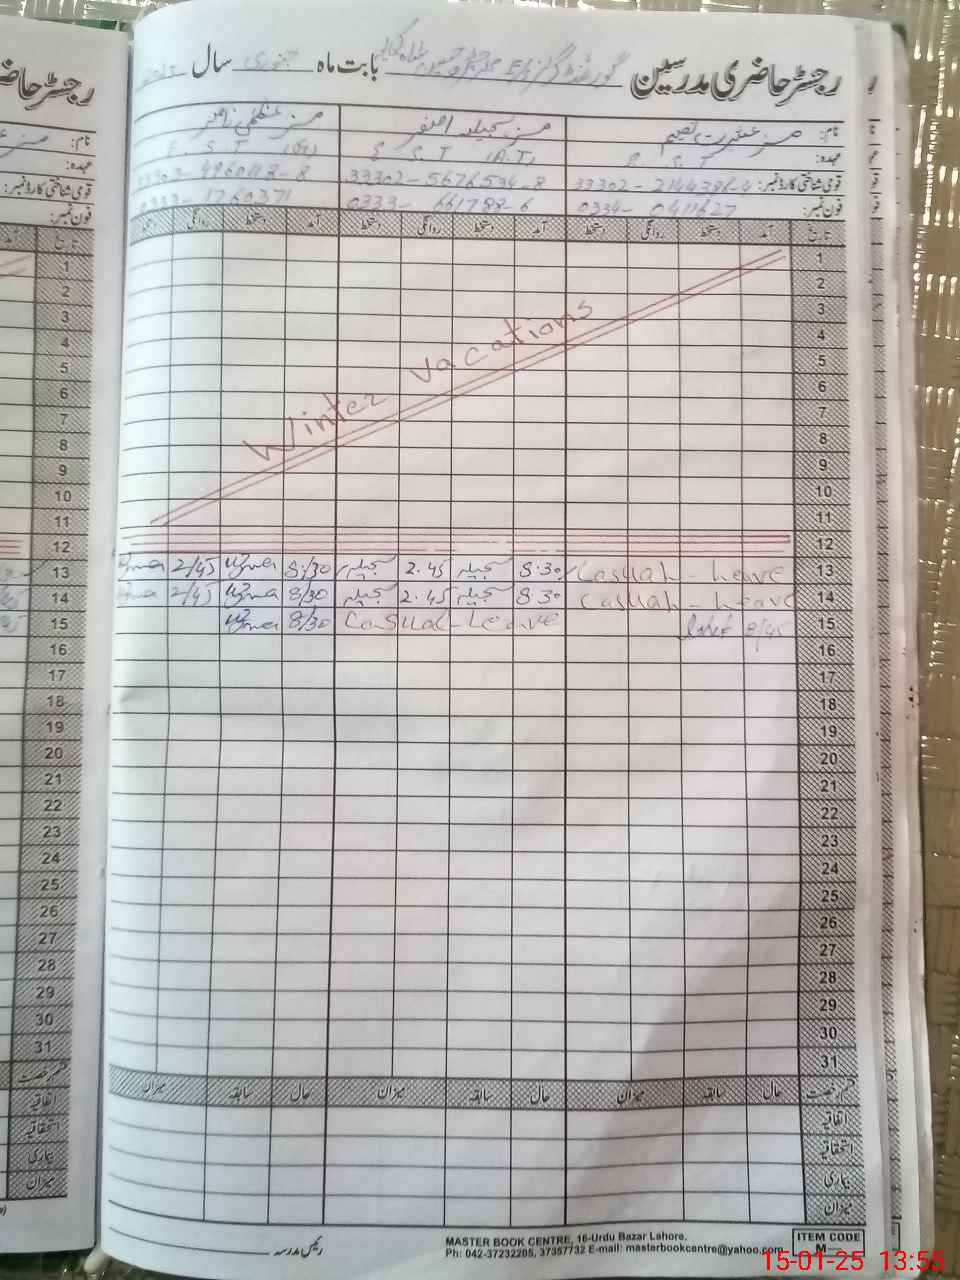 رجسٹر حاضری مدرسین گورنمنٹ گرلز بابت ماہ جنوری سال
نام: مسز عشرت نسیم مسز سجیلہ اصغر مسز عظمیٰ ناصر
عہدہ: E. S. T E. S. T
قومی شناختی کارڈ نمبر: 33302-2144386-4 33302-5676534-8 33303-4960118-8
فون نمبر: 0334-0411627 0333-661788-6 0333-1760371
تاریخ آمد دستخط روانگی دستخط آمد دستخط روانگی دستخط آمد دستخط روانگی
1
2
3
4
5
6
7
8
9
10
11
Winter vacations
12
13 Casual-Leave 8.30 سجیلہ 2.45 سجیلہ 8/30 Uzma 2/45 Uzma
14 Casual-Leave 8.30 سجیلہ 2.45 سجیلہ 8/30 Uzma 2/45 Uzma
15 8/45 Casual-Leave 8/30 Uzma
16
17
18
19
20
21
22
23
24
25
26
27
28
29
30
31
قسم رخصت حال سابقہ میزان حال سابقہ میزان حال سابقہ میزان
اتفاقیہ
استحقاقیہ
بیماری
میزان
رئیس مدرسہ
MASTER BOOK CENTRE, 16-Urdu Bazar Lahore.
Ph: 042-37232205, 37357732 E-mail: masterbookcentre@yahoo.com
ITEM CODE
M
15-01-25 13:55